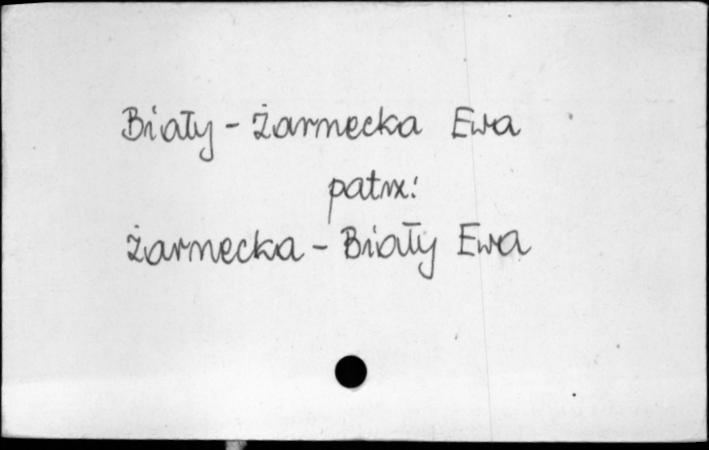 Biały - Żarnecka Ewa
patrz:
Żarnecka - Biały Ewa